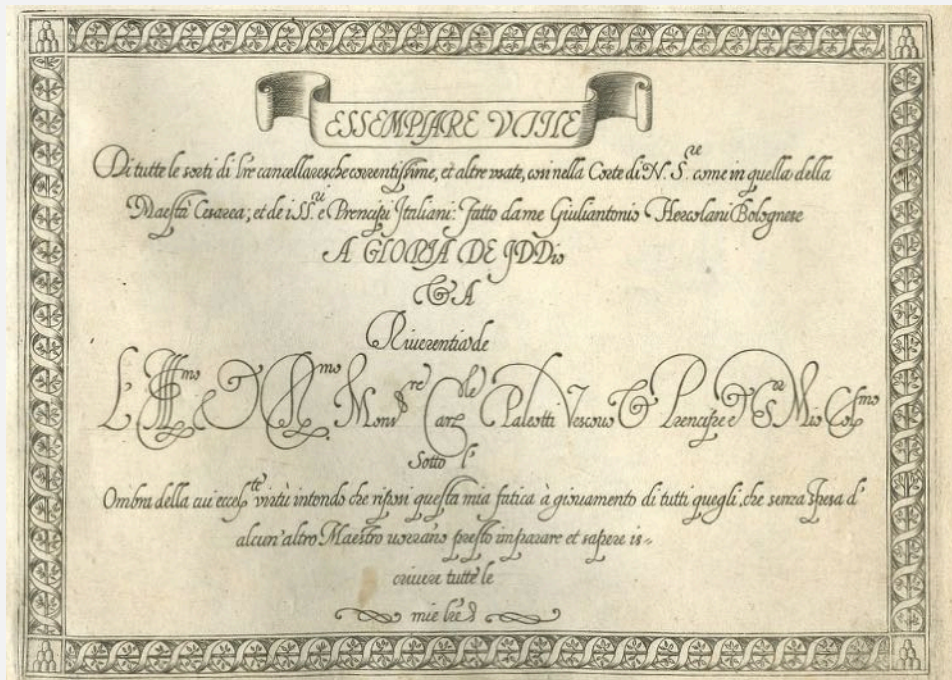 ESSEMPLARE VTILE
Di tutte le sorti di lr̃e cancellaresche correntissime, et altre usate, cosi nella Corte di N. S.re come in quella della
Maestà Cesarea; et de i SS.ri e Prencipi Italiani: fatto da me Giuliantonio Hercolani Bolognese
A GLORIA DE IDDio
& A
Riuerentia de
L Ill.mo & R.mo Mons.re Car.le Paleotti Vescouo & Prencipe e S.r Mio Col.mo
Sotto l'
Ombra della cui eccel.te virtù intendo che riposi questa mia fatica à giouamento di tutti quegli, che senza spesa d'
alcun'altro Maestro uorrano presto imparare et sapere is=
criuere tutte le
mie lr̃e